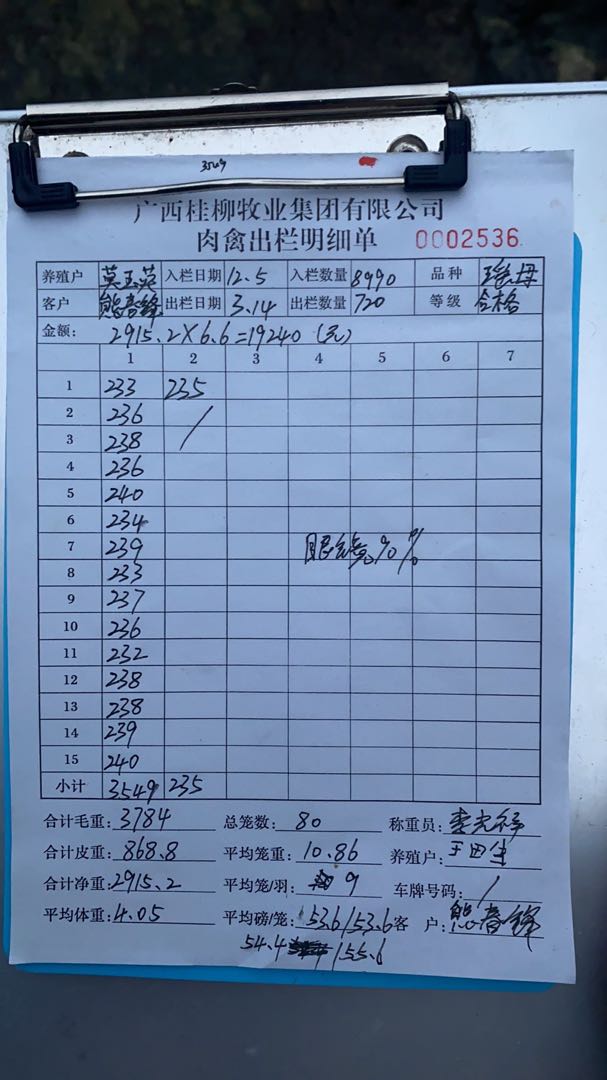 3549
广西桂柳牧业集团有限公司
肉禽出栏明细单 0002536
养殖户 莫玉英 入栏日期 12.5 入栏数量 8990 品种
客户 熊春锋 出栏日期 3.14 出栏数量 720 等级 合格
金额: 2915.2×6.6=19240(元)
1 2 3 4 5 6 7
1 233 235
2 236 /
3 238
4 236
5 240
6 234
7 239
8 233
9 237
10 236
11 232
12 238
13 238
14 239
15 240
小计 3549 235
合计毛重: 3784 总笼数: 80 称重员:
合计皮重: 868.8 平均笼重: 10.86 养殖户:
合计净重: 2915.2 平均笼/羽: 9 车牌号码: /
平均体重: 4.05 平均磅/笼: 53.6/53.6 客 户: 熊春锋
54.4 /55.6